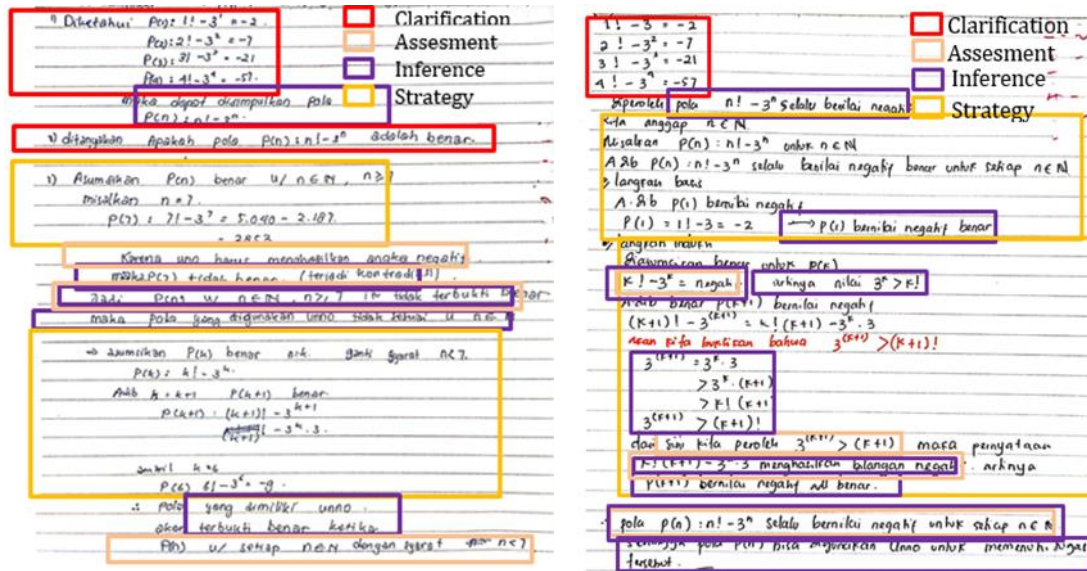 1) Diketahui P(1): 1! - 3¹ = -2.
P(2): 2! - 3² = -7
P(3): 3! - 3³ = -21
P(4): 4! - 3⁴ = -57.
maka dapat disimpulkan pola
P(n): n! - 3ⁿ.
Clarification
Assesment
Inference
Strategy
ditanyakan Apakah pola P(n): n! - 3ⁿ adalah benar.
Asumsikan P(n) benar u/ n ∈ N, n ≥ 7
misalkan n = 7.
P(7): 7! - 3⁷ = 5.040 - 2.187.
= 2853
Karena uno harus menghasilkan angka negatif.
maka P(7) tidak benar. (terjadi kontradiksi)
Jadi P(n) u/ n ∈ N, n ≥ 7 itu tidak terbukti benar
maka pola yang digunakan unno tidak sesuai u n ∈ N
→ asumsikan P(k) benar ganti syarat n < 7.
P(k): k! - 3ᵏ.
Adib k = k+1 P(k+1) benar.
P(k+1): (k+1)! - 3ᵏ⁺¹
(k+1)! - 3ᵏ . 3.
ambil k = 6
P(6) 6! - 3⁶ = -9.
∴ Pola yang dimiliki unno.
akan terbukti benar ketika
P(n) u/ setiap n ∈ N dengan syarat n < 7
1! - 3 = -2
2! - 3² = -7
3! - 3³ = -21
4! - 3⁴ = -57
Clarification
Assesment
Inference
Strategy
diperoleh pola n! - 3ⁿ selalu bernilai negatif
Kita anggap n ∈ N
Misalkan P(n): n! - 3ⁿ untuk n ∈ N
A.dib P(n): n! - 3ⁿ selalu bernilai negatif benar untuk setiap n ∈ N
langkah basis
A.dib P(1) bernilai negatif
P(1) = 1! - 3 = -2 → P(1) bernilai negatif benar
langkah induksi
Diasumsikan benar untuk P(k)
k! - 3ᵏ = negatif artinya nilai 3ᵏ > k!
A.dib benar P(k+1) bernilai negatif
(k+1)! - 3⁽ᵏ⁺¹⁾ = k! (k+1) - 3ᵏ . 3
akan kita buktikan bahwa 3⁽ᵏ⁺¹⁾ > (k+1)!
3⁽ᵏ⁺¹⁾ = 3ᵏ . 3
> 3ᵏ . (k+1)
> k! (k+1
3⁽ᵏ⁺¹⁾ > (k+1)!
dari sini kita peroleh 3⁽ᵏ⁺¹⁾ > (k+1) maka pernyataan
k! (k+1) - 3ᵏ . 3 menghasilkan bilangan negatif. artinya
P(k+1) bernilai negatif adl benar.
pola P(n): n! - 3ⁿ selalu bernilai negatif untuk setiap n ∈ N
sehingga pola P(n) bisa digunakan Unno untuk memenuhi
tersebut.